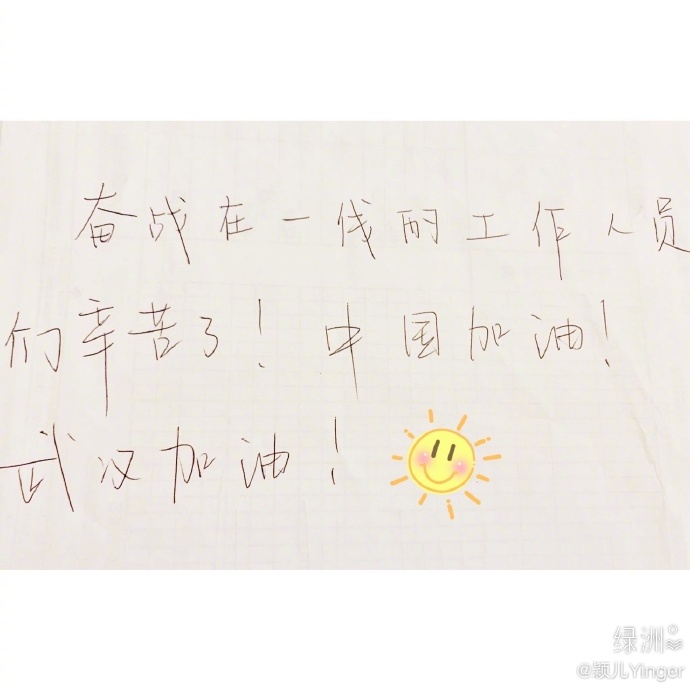 奋战在一线的工作人员
们辛苦了！中国加油！
武汉加油！
绿洲
@颖儿Yinger